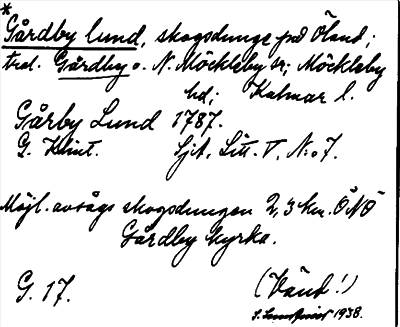 *
Gårdby lund, skogsdunge på Öland;
trol. Gårdby o. N. Möckleby sn; Möckleby
hd; Kalmar l.
Gårby Lund 1787.
G. Klint. Sjk. Litt. V, N:o 7.
Möjl. avsågs skogsdungen 2,3 km. ÖNÖ
Gårdby kyrka.
G. 17. (Vänd!)
1938.